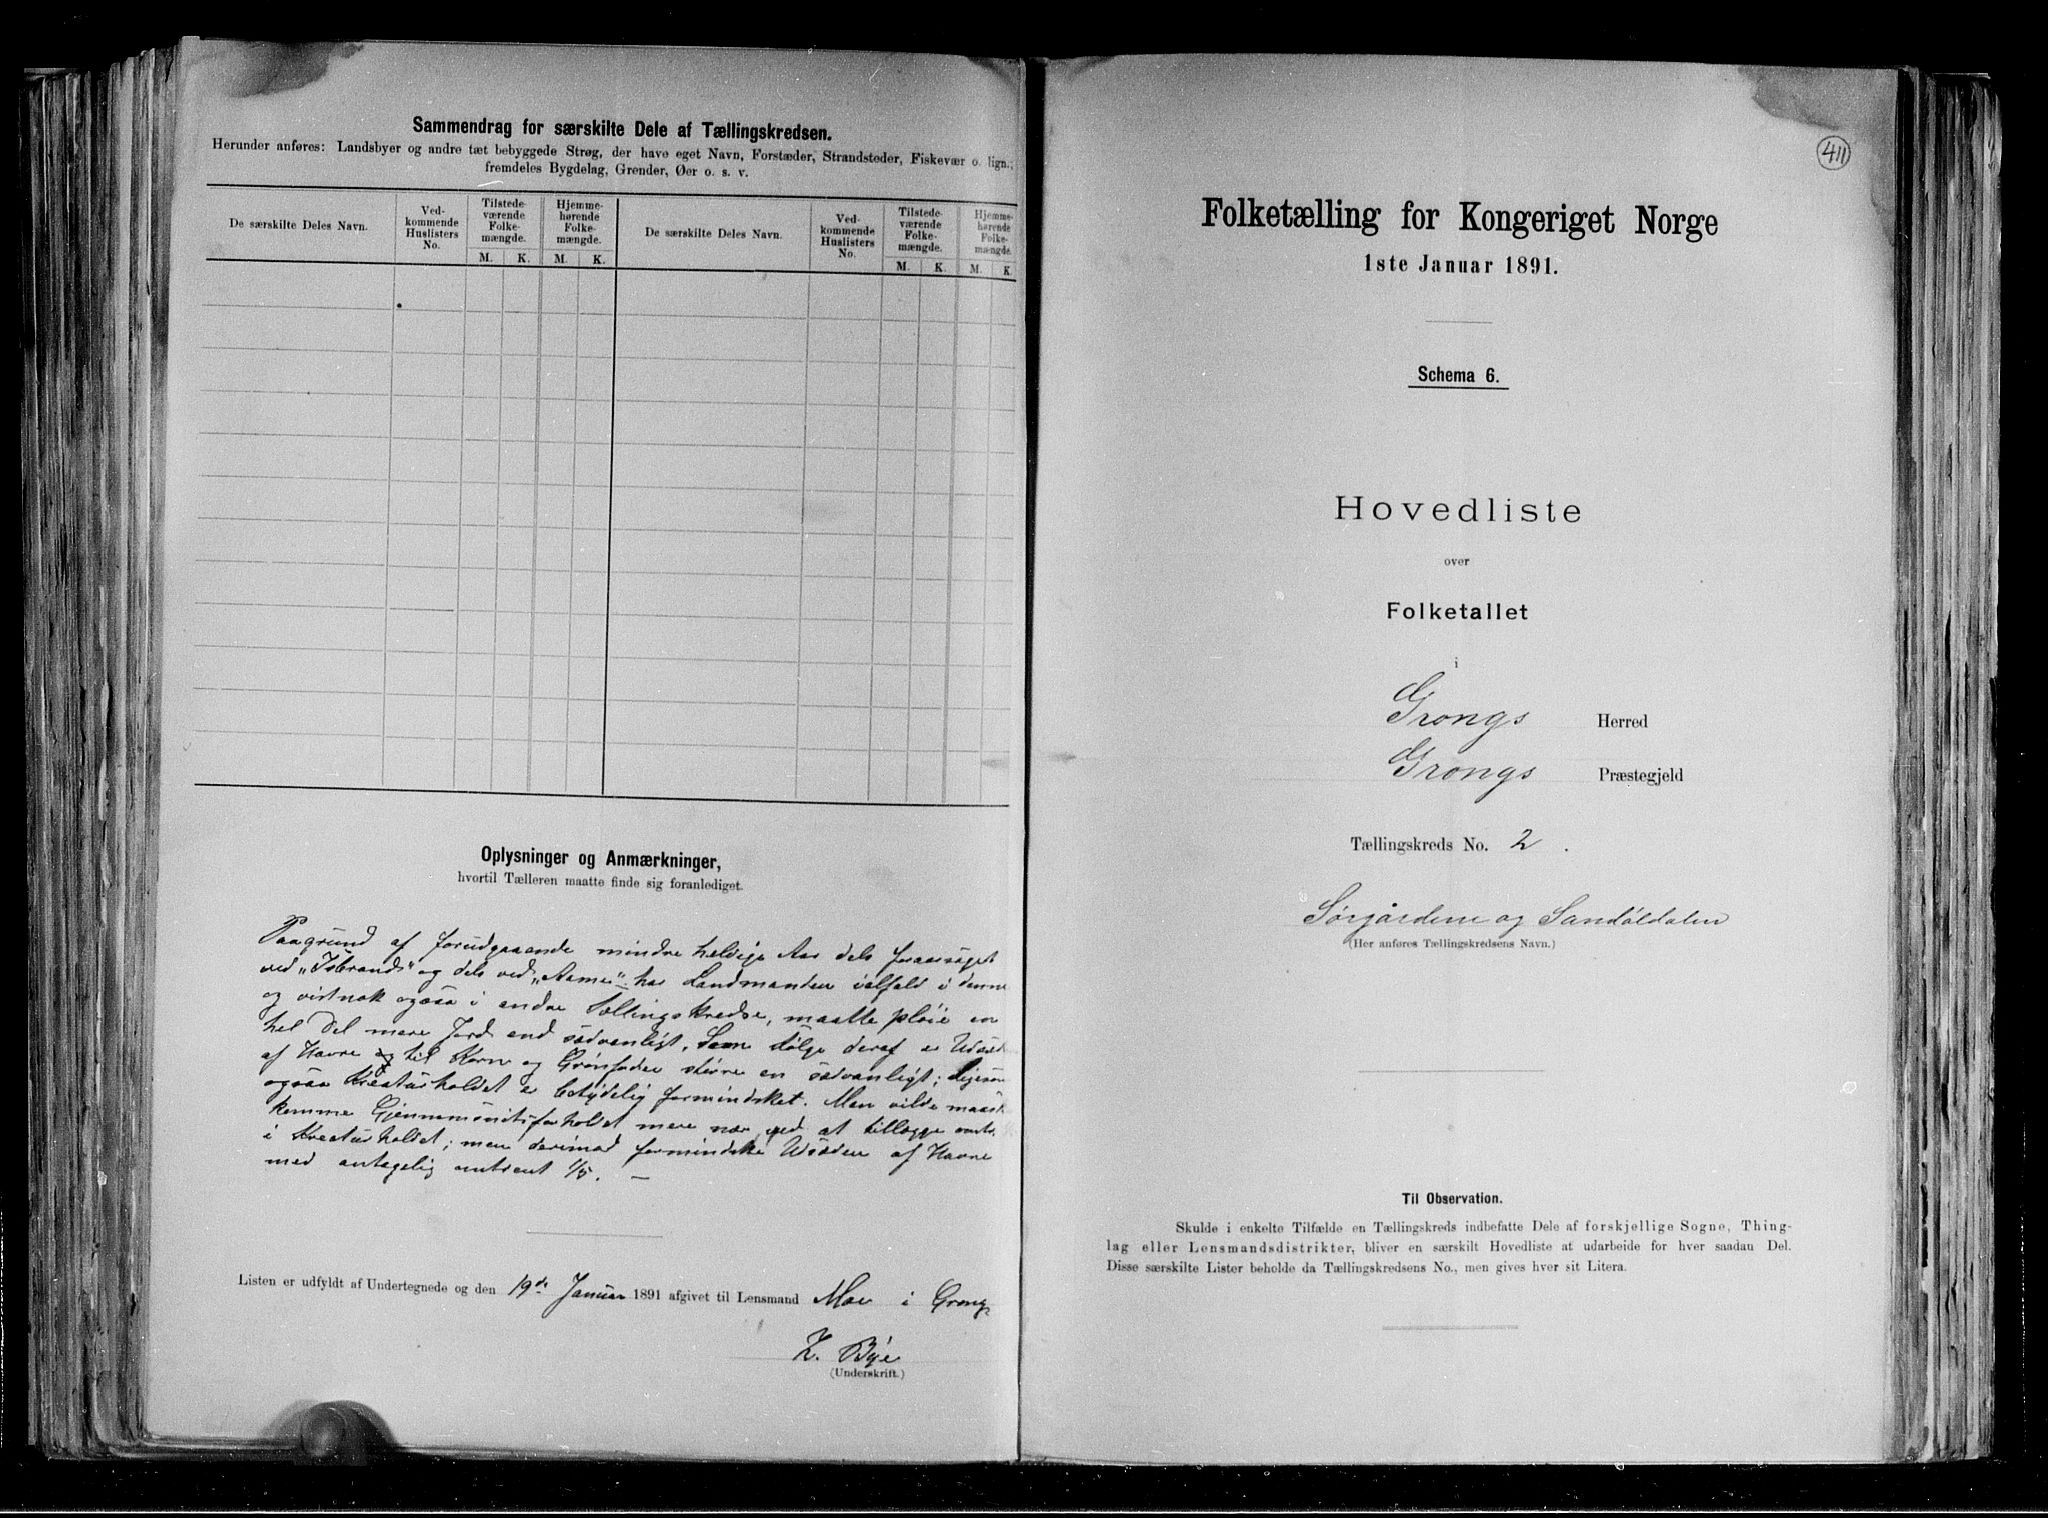 Sammendrag for særskilte Dele af Tællingskredsen.
Herunder anføres: Landsbyer og andre tæt bebyggede Strøg, der have eget Navn, Forstæder, Strandsteder, Fiskevær o. lign.;
fremdeles Bygdelag, Grender, Øer o. s. v.
De særskilte Deles Navn.
Ved-
kommende
Huslisters
No.
Tilstede-
værende
Folke-
mængde.
Hjemme-
hørende
Folke-
mængde.
De særskilte Deles Navn.
Ved-
kommende
Huslisters
No.
Tilstede-
værende
Folke-
mængde.
Hjemme-
hørende
Folke-
mængde.
M. K. M. K. M. K. M. K.
Oplysninger og Anmærkninger,
hvortil Tælleren maatte finde sig foranlediget.
Paagrund af forudgaaende mindre heldige Aar dels foraarsaget
ved „Isbrand" og dels ved „Aame" har Landmanden ialfald i denne
og vistnok ogsaa i andre Tællingskredse, maatte pløie en
hel Del mere Jord end sædvanligt. Som Følge deraf er Udsæd
af Havre og til Korn og Grønfoder større en sædvanligt; ligesaa
ogsaa Kreaturholdet er betydelig formindsket. Man vilde maaske
komme Gjennemsnitsforholdet mere nær ved at tillægge
i Kreaturholdet; men derimod formindske Udsæden af Havre
med antagelig omtrent 1/5. —
Listen er udfyldt af Undertegnede og den 19de Januar 1891 afgivet til Lensmand Moe i Grong
Z. Bye
(Underskrift.)
411
Folketælling for Kongeriget Norge
1ste Januar 1891.
Schema 6.
Hovedliste
over
Folketallet
i
Grongs Herred
Grongs Præstegjeld
Tællingskreds No. 2.
Sørgårdene og Sandøldalen
(Her anføres Tællingskredsens Navn.)
Til Observation.
Skulde i enkelte Tilfælde en Tællingskreds indbefatte Dele af forskjellige Sogne, Thing-
lag eller Lensmandsdistrikter, bliver en særskilt Hovedliste at udarbeide for hver saadan Del.
Disse særskilte Lister beholde da Tællingskredsens No., men gives hver sit Litera.